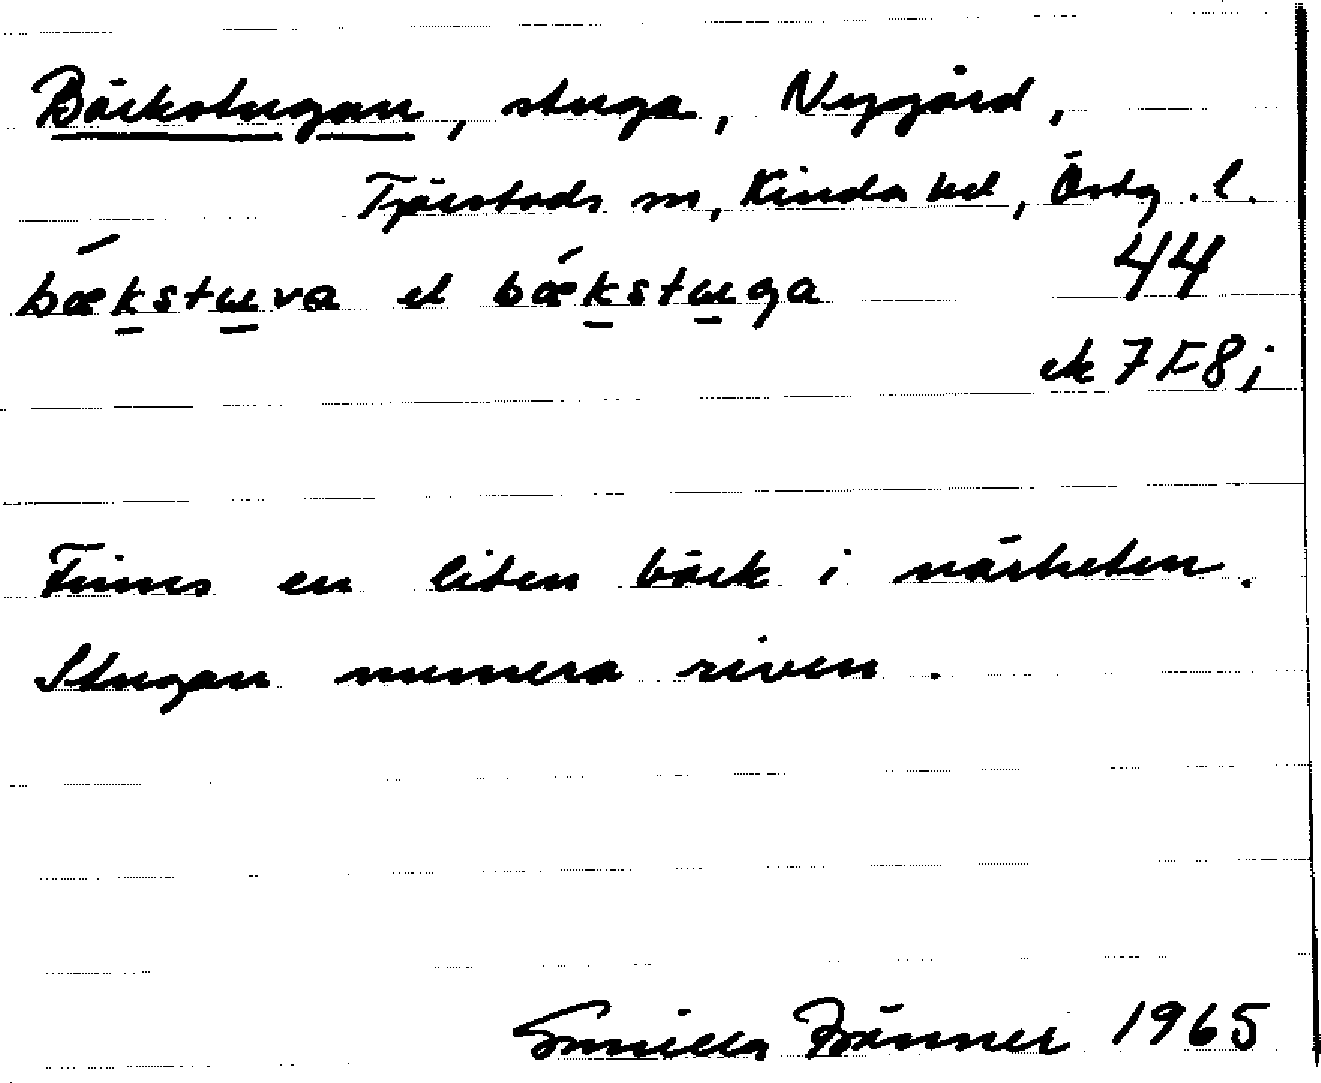 Bäckstugan, stuga, Nygård,
Tjärstads sn, Kinda hd, Östg. l.
bǽkstɯva el bǽkstɯga 44
ek 7F8j
Finns en liten bäck i närheten.
Stugan numera riven.
Gunilla 1965